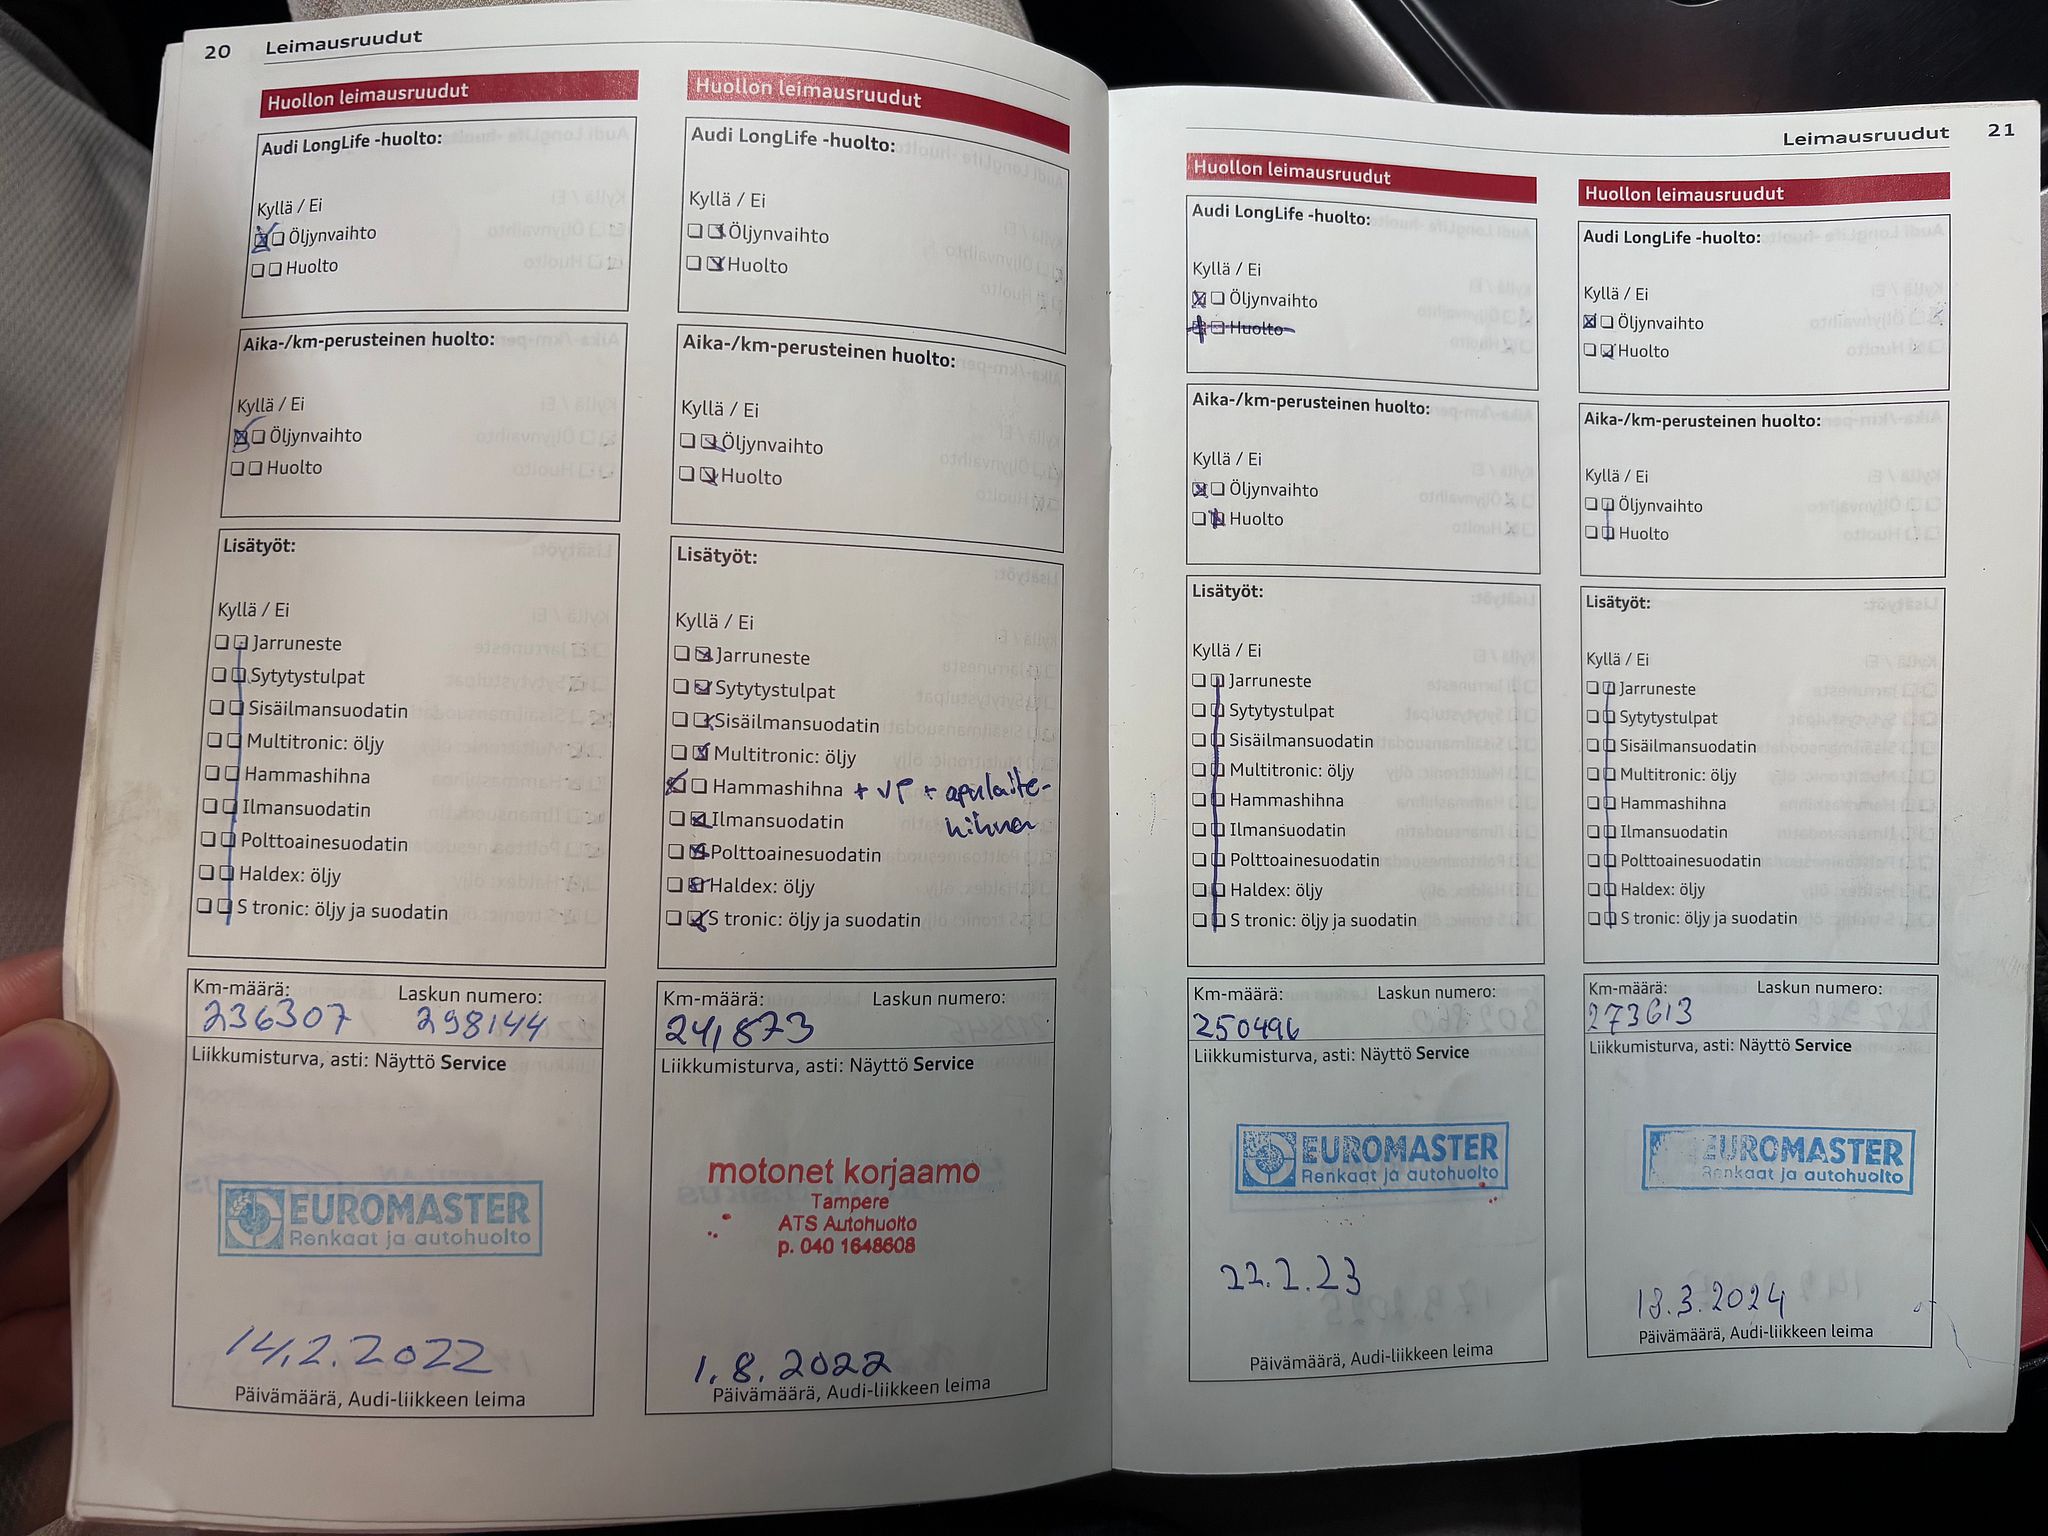 20 Leimausruudut
Huollon leimausruudut
Audi LongLife -huolto:
Kyllä / Ei
Öljynvaihto
Huolto
Aika-/km-perusteinen huolto:
Kyllä / Ei
Öljynvaihto
Huolto
Lisätyöt:
Kyllä / Ei
Jarruneste
Sytytystulpat
Sisäilmansuodatin
Multitronic: öljy
Hammashihna
Ilmansuodatin
Polttoainesuodatin
Haldex: öljy
S tronic: öljy ja suodatin
Km-määrä: Laskun numero:
236307 298144
Liikkumisturva, asti: Näyttö Service
EUROMASTER
Renkaat ja autohuolto
14.2.2022
Päivämäärä, Audi-liikkeen leima
Huollon leimausruudut
Audi LongLife -huolto:
Kyllä / Ei
Öljynvaihto
Huolto
Aika-/km-perusteinen huolto:
Kyllä / Ei
Öljynvaihto
Huolto
Lisätyöt:
Kyllä / Ei
Jarruneste
Sytytystulpat
Sisäilmansuodatin
Multitronic: öljy
Hammashihna + VP + apulaite-
hihna
Ilmansuodatin
Polttoainesuodatin
Haldex: öljy
S tronic: öljy ja suodatin
Km-määrä: Laskun numero:
241873
Liikkumisturva, asti: Näyttö Service
motonet korjaamo
Tampere
ATS Autohuolto
p. 040 1648608
1.8.2022
Päivämäärä, Audi-liikkeen leima
Leimausruudut 21
Huollon leimausruudut
Audi LongLife -huolto:
Kyllä / Ei
Öljynvaihto
Huolto
Aika-/km-perusteinen huolto:
Kyllä / Ei
Öljynvaihto
Huolto
Lisätyöt:
Kyllä / Ei
Jarruneste
Sytytystulpat
Sisäilmansuodatin
Multitronic: öljy
Hammashihna
Ilmansuodatin
Polttoainesuodatin
Haldex: öljy
S tronic: öljy ja suodatin
Km-määrä: Laskun numero:
250496
Liikkumisturva, asti: Näyttö Service
EUROMASTER
Renkaat ja autohuolto
22.2.23
Päivämäärä, Audi-liikkeen leima
Huollon leimausruudut
Audi LongLife -huolto:
Kyllä / Ei
Öljynvaihto
Huolto
Aika-/km-perusteinen huolto:
Kyllä / Ei
Öljynvaihto
Huolto
Lisätyöt:
Kyllä / Ei
Jarruneste
Sytytystulpat
Sisäilmansuodatin
Multitronic: öljy
Hammashihna
Ilmansuodatin
Polttoainesuodatin
Haldex: öljy
S tronic: öljy ja suodatin
Km-määrä: Laskun numero:
273613
Liikkumisturva, asti: Näyttö Service
EUROMASTER
Renkaat ja autohuolto
13.3.2024
Päivämäärä, Audi-liikkeen leima